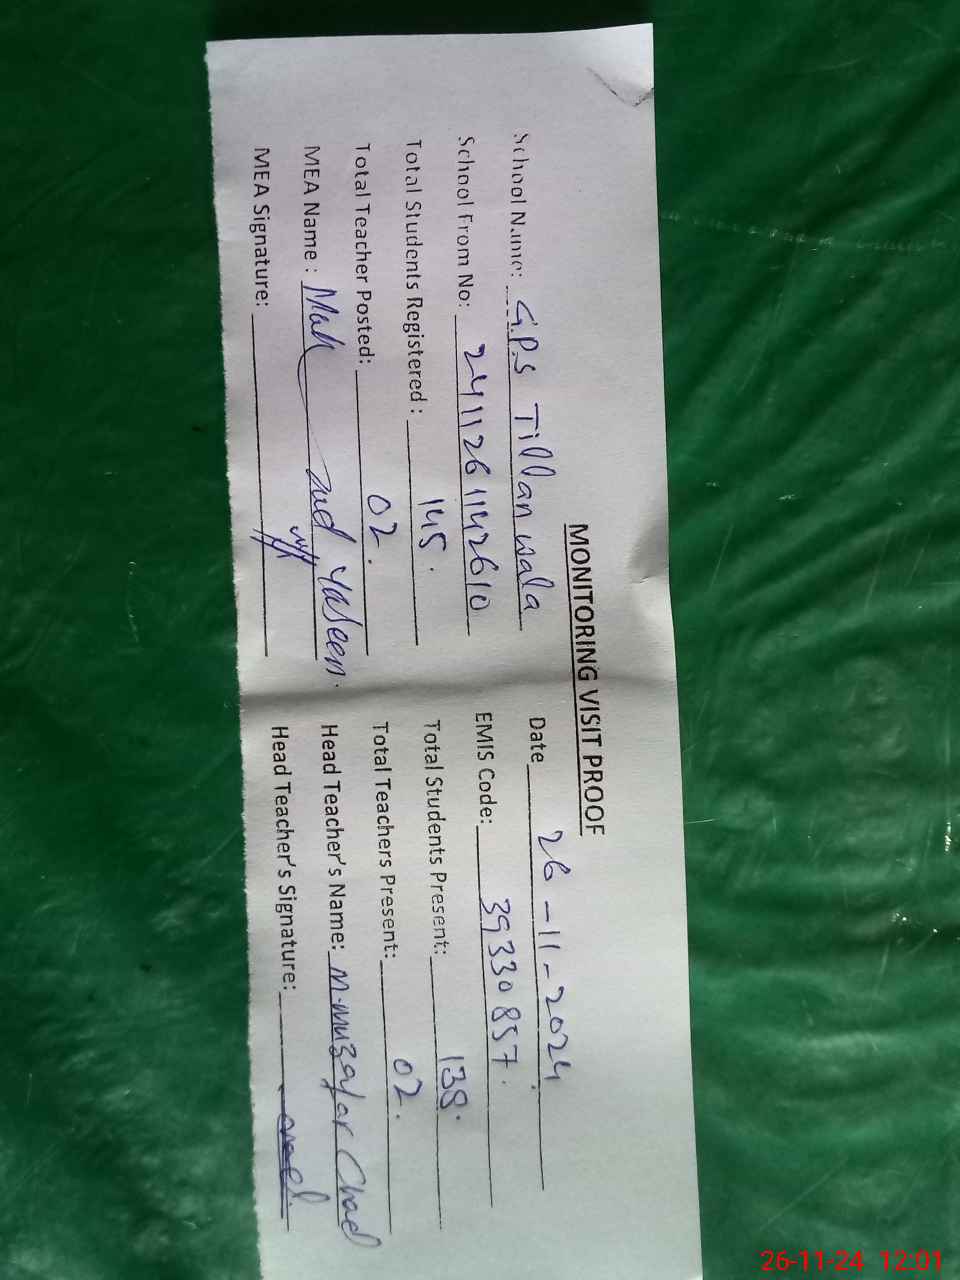 MONITORING VISIT PROOF
School Name: G.P.S Tillan wala Date 26-11-2024
School From No: 2411261142610 EMIS Code: 39330857.
Total Students Registered: 145. Total Students Present: 138.
Total Teacher Posted: 02. Total Teachers Present: 02.
MEA Name: Yaseen. Head Teacher's Name: M. Muzafar
MEA Signature: Head Teacher's Signature:
26-11-24 12:01